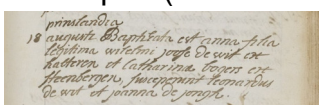 primlandia
18 augusti Baptizata est anna filia
legitima wilelmi josse de wit et
halteren et Catharina bogers ex
steenbergen, susceperunt leonardus
de wit et joanna de jongh.